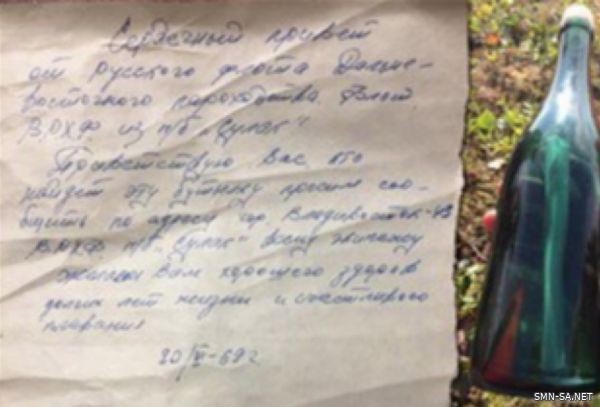 Сердечный привет
от русского флота Дальне-
восточного пароходства.
В.О.Х.Ф. из п/б „Сулак"
Приветствую Вас кто
найдет эту бутылку просим соо-
бщить по адресу гр. Владивосток-43
В.О.Х.Ф. п/б „Сулак" всему экипажу
желаем Вам хорошего здоров
долгих лет жизни и счастливого
плавания
20/VI-69 г.
SMN-SA.NET